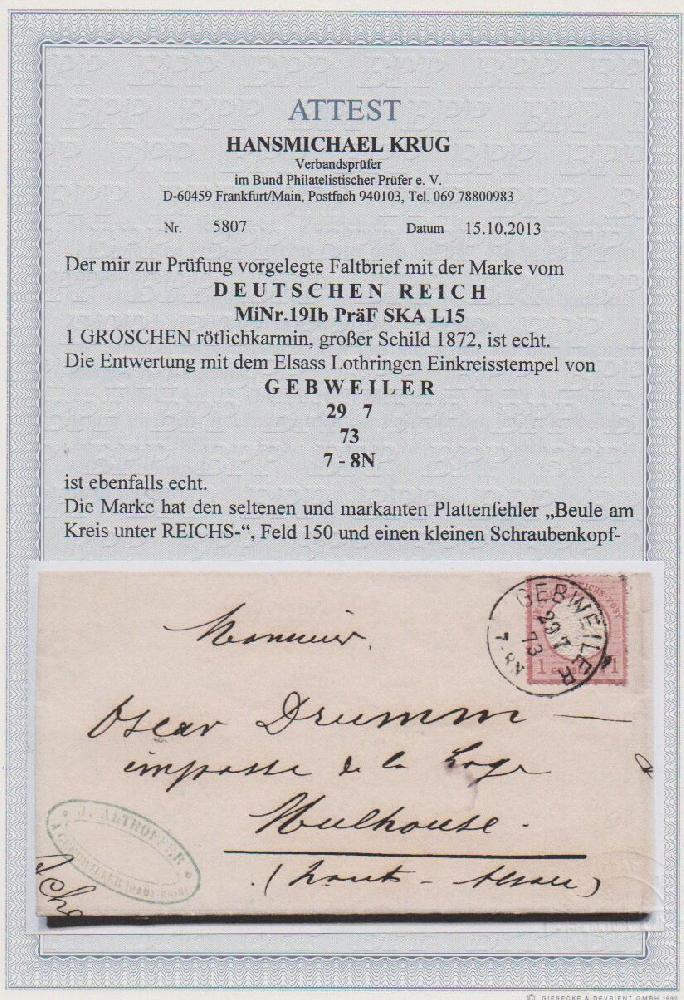 ATTEST
HANSMICHAEL KRUG
Verbandsprüfer
im Bund Philatelistischer Prüfer e. V.
D-60459 Frankfurt/Main, Postfach 940103, Tel. 069 78800983
Nr. 5807 Datum 15.10.2013
Der mir zur Prüfung vorgelegte Faltbrief mit der Marke vom
DEUTSCHEN REICH
MiNr.19Ib PräF SKA L15
1 GROSCHEN rötlichkarmin, großer Schild 1872, ist echt.
Die Entwertung mit dem Elsass Lothringen Einkreisstempel von
GEBWEILER
29 7
73
7 - 8N
ist ebenfalls echt.
Die Marke hat den seltenen und markanten Plattenfehler „Beule am
Kreis unter REICHS-“, Feld 150 und einen kleinen Schraubenkopf-
GEBWEILER
29 7
73
7-8N
1 1
Monsieur
Oscar Drumm
impasse de la Loge
Mulhouse.
(haut - Alsace)
J. ALTHOFFER
GIESECKE & DEVRIENT GMBH